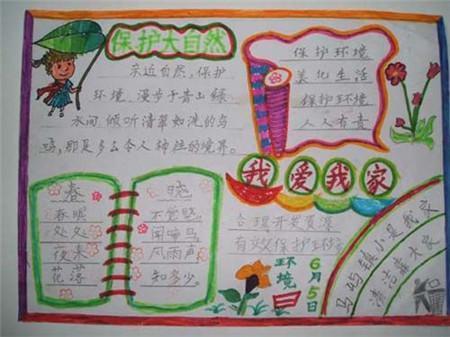 保护大自然
亲近自然,保护
环境。漫步于青山绿
水间,倾听清翠如洗的鸟
鸣,那是多么令人神往的境界。
保护环境
美化生活
保护环境
人人有责
我爱我家
春 晓
春眠 不觉晓。
处处 闻啼鸟。
夜来 风雨声,
花落 知多少。
合理开发资源
有效保护
6月5日
环境日
马鸣镇小是我家
清洁靠大家